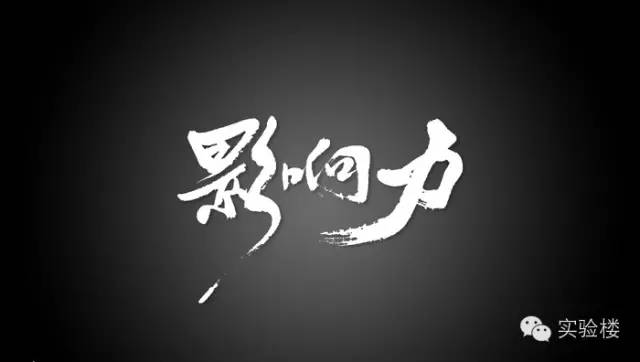 影响力
实验楼